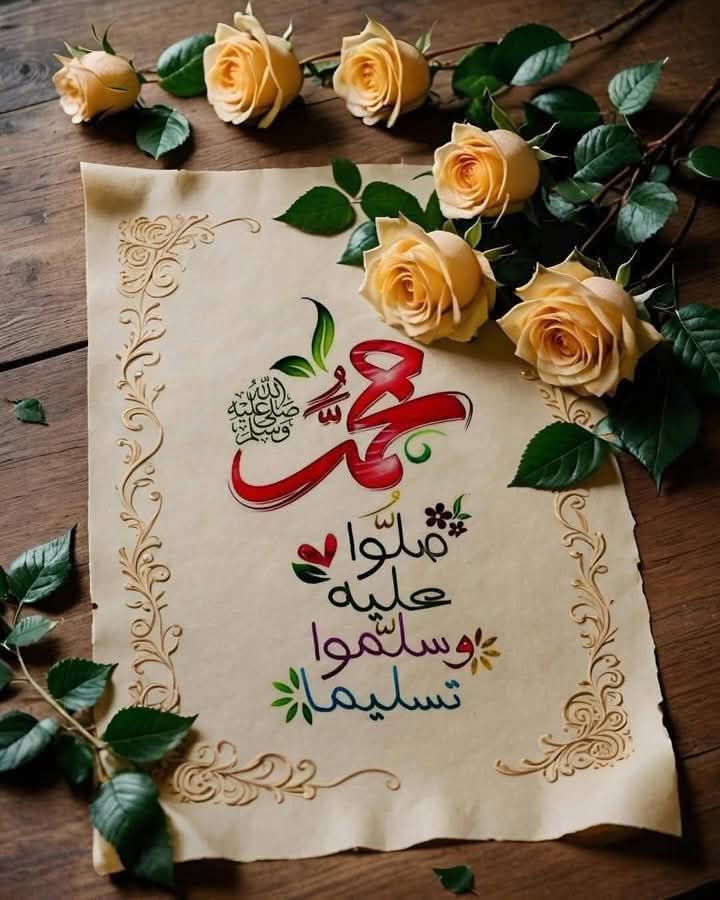 محمد
صلى الله عليه وسلم
صلُّوا
عليه
وسلِّموا
تسليما